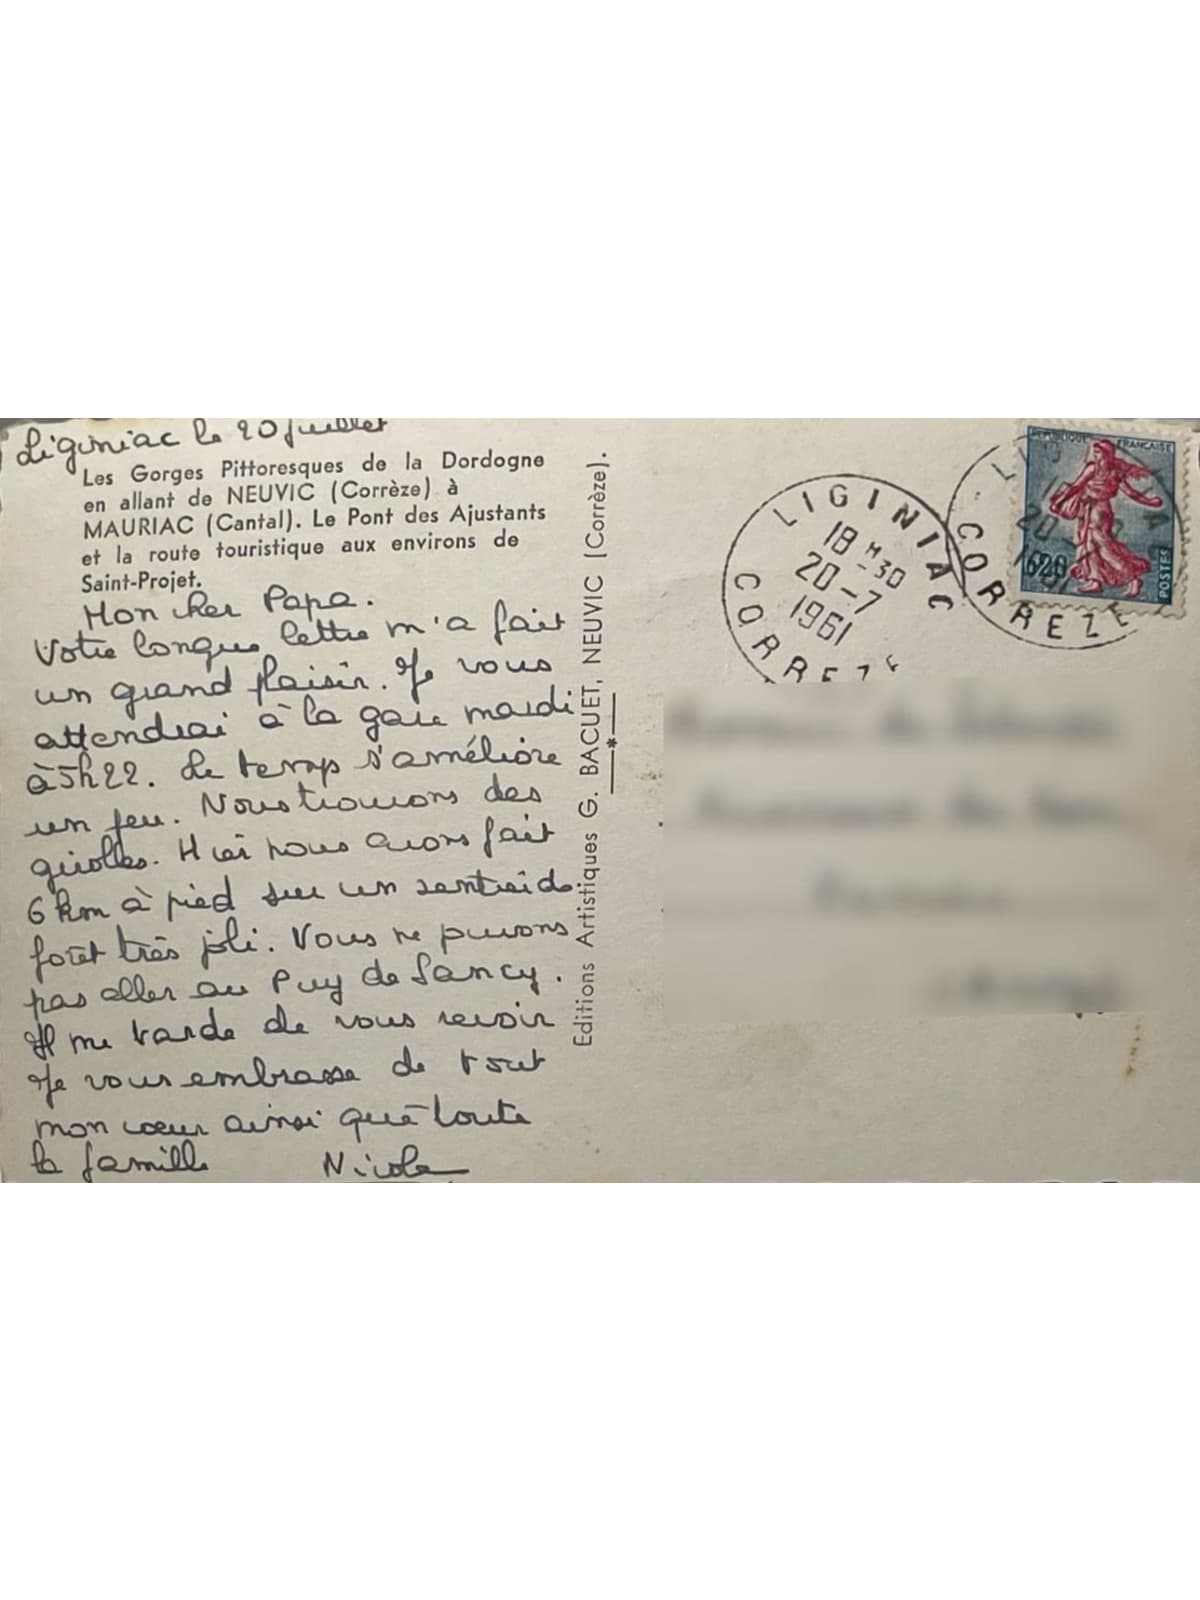 Liginiac le 20 juillet
Les Gorges Pittoresques de la Dordogne
en allant de NEUVIC (Corrèze) à
MAURIAC (Cantal). Le Pont des Ajustants
et la route touristique aux environs de
Saint-Projet.
Mon cher Papa.
Votre longue lettre m'a fait
un grand plaisir. Je vous
attendrai à la gare mardi
à 5h22. Le temps s'améliore
un peu. Nous trouvons des
girolles. Hier nous avons fait
6 km à pied sur un sentier de
forêt très joli. Nous ne pouvons
pas aller au Puy de Sancy.
Il me tarde de vous revoir
Je vous embrasse de tout
mon cœur ainsi que toute
la famille Nicole
Editions Artistiques G. BACUET, NEUVIC (Corrèze).
LIGINIAC
18 H 30
20-7
1961
CORREZE
REPUBLIQUE FRANÇAISE
0,20
POSTES
20
1961
CORREZE